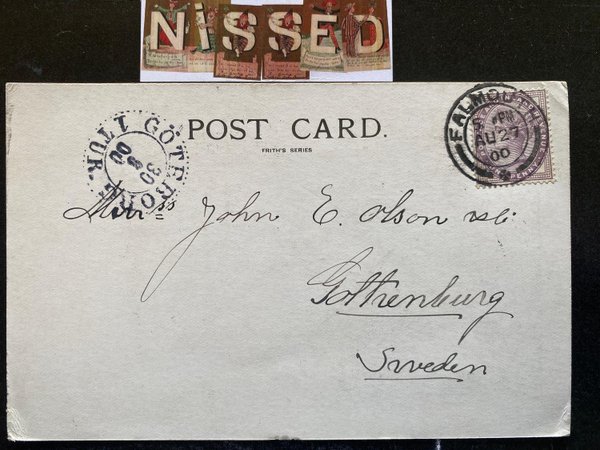 NiSSED
POST CARD.
FRITH'S SERIES
GÖTEBORG
1 TUR.
30
8
00
FALMOUTH
PM
AU 27
00
Miss John E. Olson
Gothenburg
Sweden